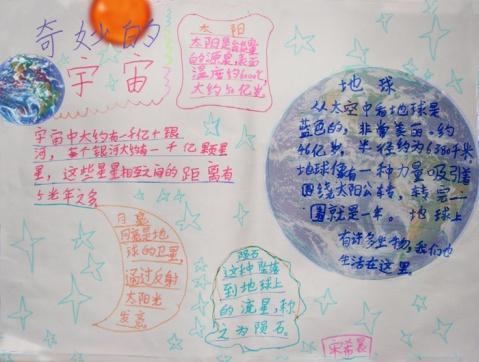 奇妙的
宇宙
太阳
太阳是能量
的源泉,表面
温度约6000℃,
大约50亿岁
宇宙中大约有一千亿个银
河,每个银河大约有一千亿颗星
星,这些星星相互之间的距离有
5光年之多
月亮
月亮是地
球的卫星,
通过反射
太阳光
发亮.
陨石
这种坠落
到地球上
的流星,称
之为陨石.
地球
从太空中看地球是
蓝色的,非常美丽.约
46亿岁,半径约为6380千米
地球像有一种力量吸引着
围绕太阳公转,转完一
圈就是一年。地球上
有许多生物,我们也
生活在这里